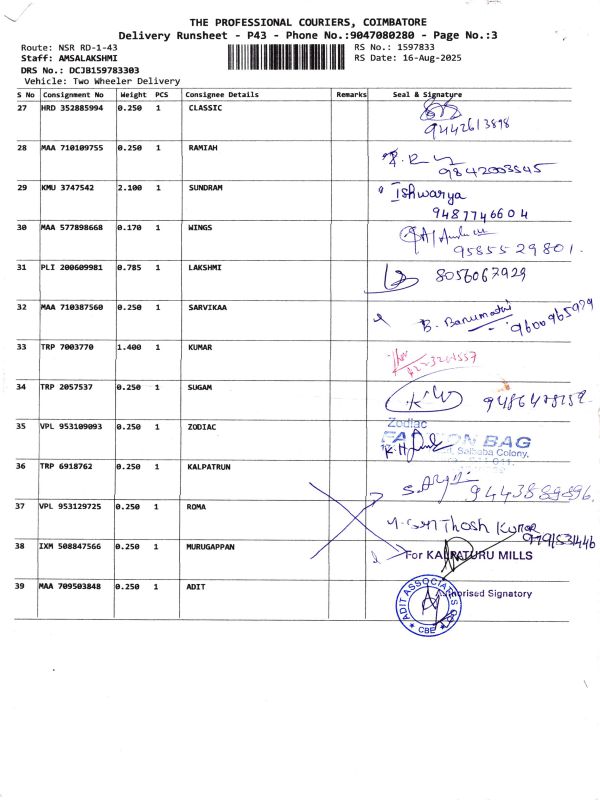 THE PROFESSIONAL COURIERS, COIMBATORE
Delivery Runsheet - P43 - Phone No.:9047080280 - Page No.:3
Route: NSR RD-1-43 RS No.: 1597833
Staff: AMSALAKSHMI RS Date: 16-Aug-2025
DRS No.: DCJB159783303
Vehicle: Two Wheeler Delivery
S No Consignment No Weight PCS Consignee Details Remarks Seal & Signature
27 HRD 352885994 0.250 1 CLASSIC
9442613898
28 MAA 710109755 0.250 1 RAMIAH
9842003545
29 KMU 3747542 2.100 1 SUNDRAM Ishwarya
9487746604
30 MAA 577898668 0.170 1 WINGS
9585529801.
31 PLI 200609981 0.785 1 LAKSHMI 8056067929
32 MAA 710387560 0.250 1 SARVIKAA
B. Banumathi 9600965979
33 TRP 7003770 1.400 1 KUMAR
34 TRP 2057537 0.250 1 SUGAM
35 VPL 953109093 0.250 1 ZODIAC Zodiac
BAG
Saibaba Colony,
36 TRP 6918762 0.250 1 KALPATRUN
9443889896.
37 VPL 953129725 0.250 1 ROMA
Kumar
9791531446
38 IXM 508847566 0.250 1 MURUGAPPAN For KALPATURU MILLS
39 MAA 709503848 0.250 1 ADIT Authorised Signatory
ADIT ASSOCIATES
CBE